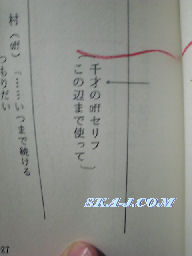 （千才のoffセリフ
この辺まで使って）
村（off）「……いつまで続ける
つもりだい
SKA-J.COM
27